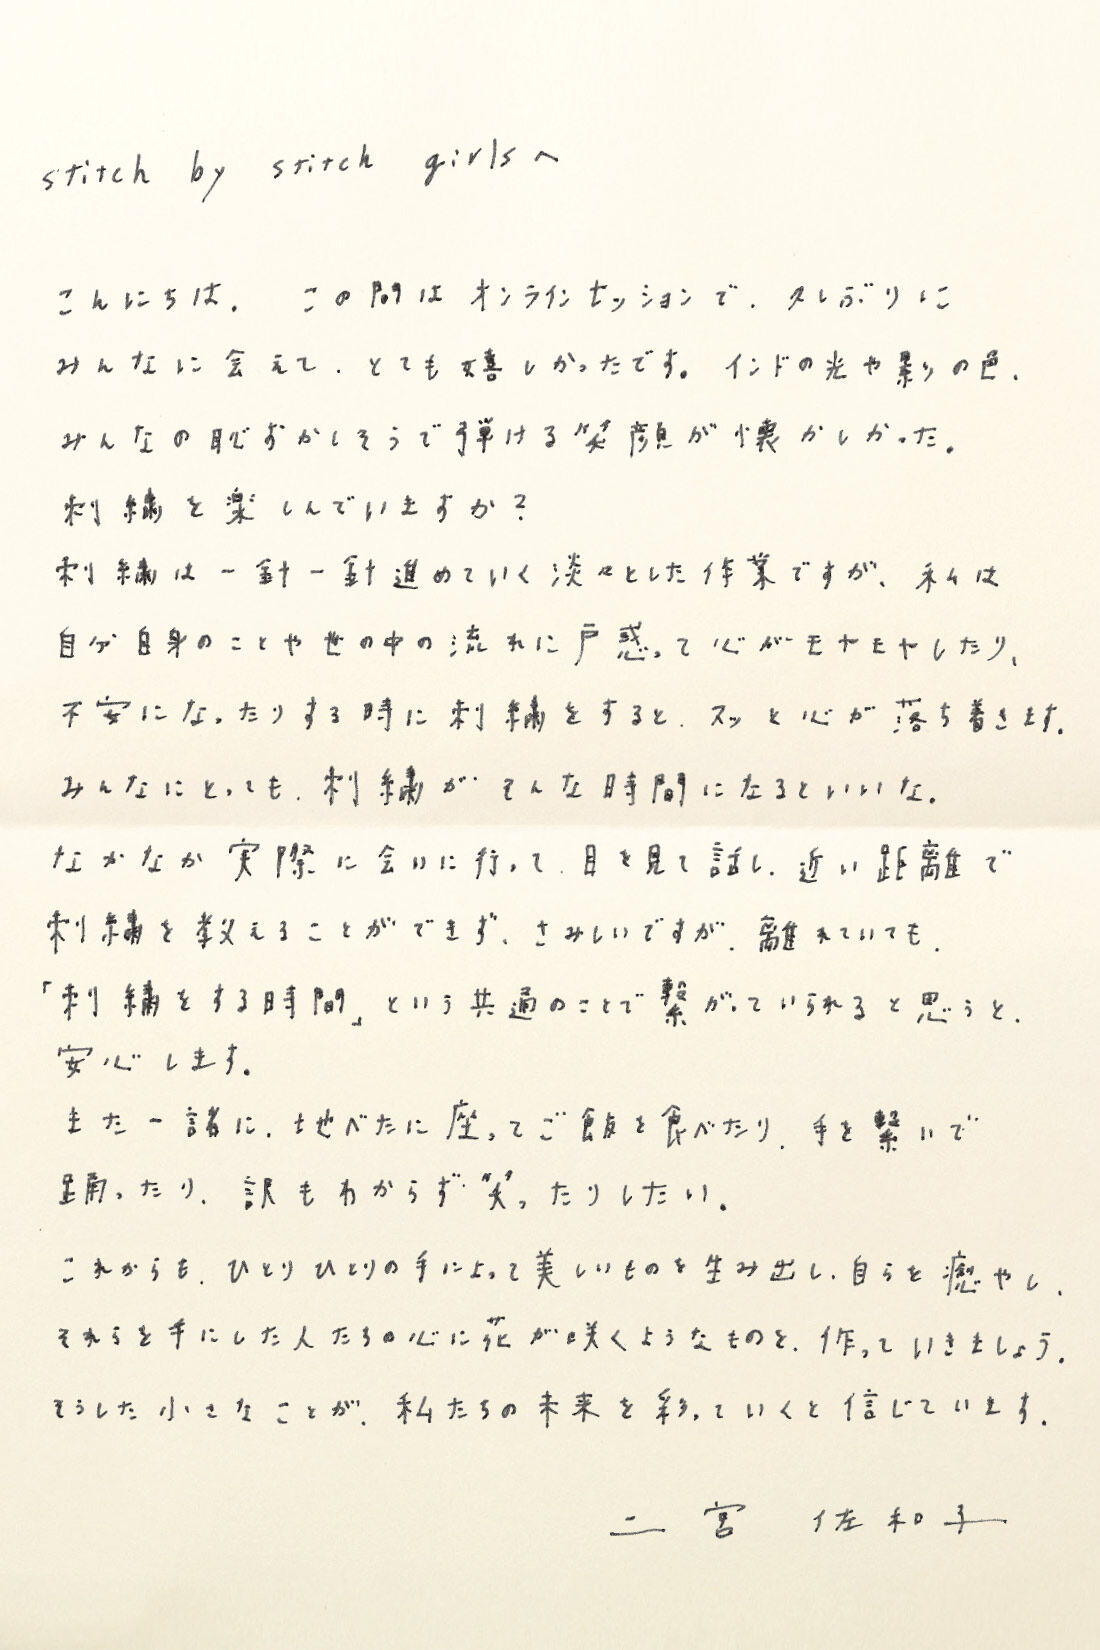 stitch by stitch girlsへ
こんにちは。 この間はオンラインセッションで、久しぶりに
みんなに会えて、とても嬉しかったです。インドの光や影の色、
みんなの恥ずかしそうで弾ける笑顔が懐かしかった。
刺繍を楽しんでいますか?
刺繍は一針一針進めていく淡々とした作業ですが、私は
自分自身のことや世の中の流れに戸惑って心がモヤモヤしたり、
不安になったりする時に刺繍をすると、スッと心が落ち着きます。
みんなにとっても、刺繍がそんな時間になるといいな。
なかなか実際に会いに行って、目を見て話し、近い距離で
刺繍を教えることができず、さみしいですが、離れていても、
「刺繍をする時間」という共通のことで繋がっていられると思うと、
安心します。
また一諸に、地べたに座ってご飯を食べたり、手を繋いで
踊ったり、訳もわからず笑ったりしたい。
これからも、ひとりひとりの手によって美しいものを生み出し、自らを癒やし、
それらを手にした人たちの心に花が咲くようなものを、作っていきましょう。
そうした小さなことが、私たちの未来を彩っていくと信じています。
二宮 佐和子